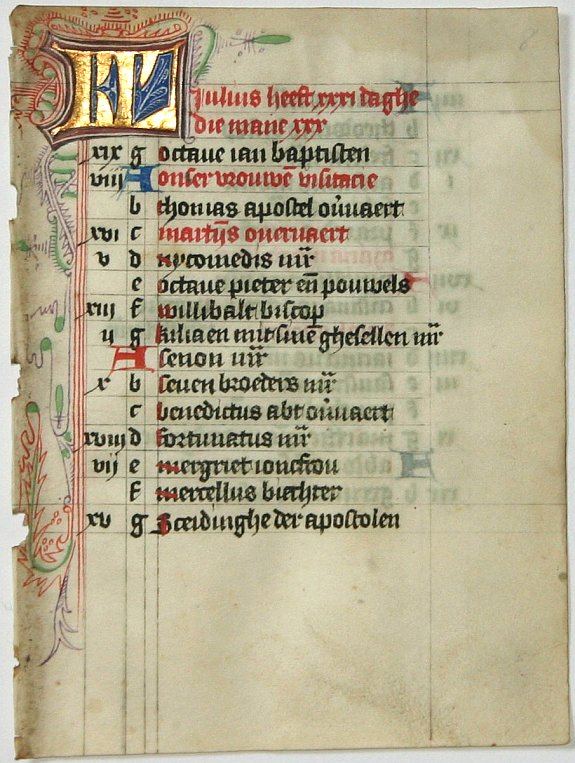 KL
Julius heeft xxxi daghe
die mane xxx
xix g octaue ian baptisten
viii A onser vrouwē visitacie
b thomas apostel ou̅uaert
xvi c martijs oueruaert
v d nycomedis mr̅
e octaue pieter en̅ pouwels
xiii f willibalt biscop
ij g kiliaen mit sine̅ ghesellen mr̅
A senon mr̅
x b seuen broeders mr̅
c benedictus abt ou̅uaert
xviii d fortunatus mr̅
vij e mergriet ioncfrou
f mercellus biechter
xv g Sceidinghe der apostolen